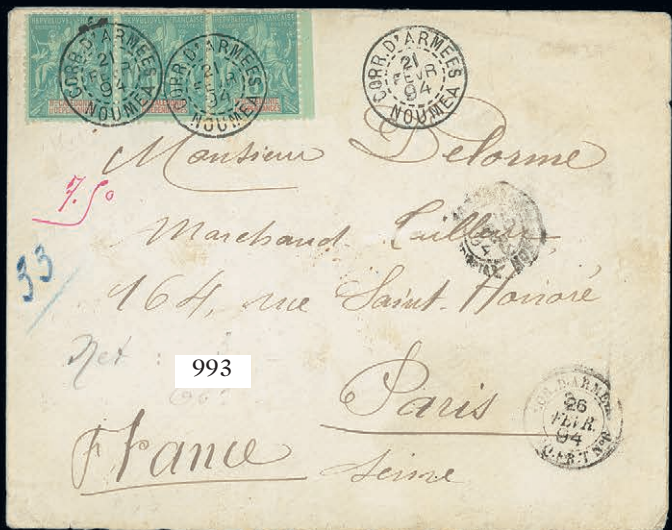 RÉPUBLIQUE FRANÇAISE
CORR. D'ARMEES
21
FEVR
94
NOUMEA
CORR. D'ARMEES
21
FEVR
94
NOUMEA
CORR. D'ARMEES
21
FEVR
94
NOUMEA
Monsieur Delorme
7.50
Marchand Tailleur
33
164, rue Saint-Honoré
Net :
993
Paris
26
FEVR.
94
France
Seine